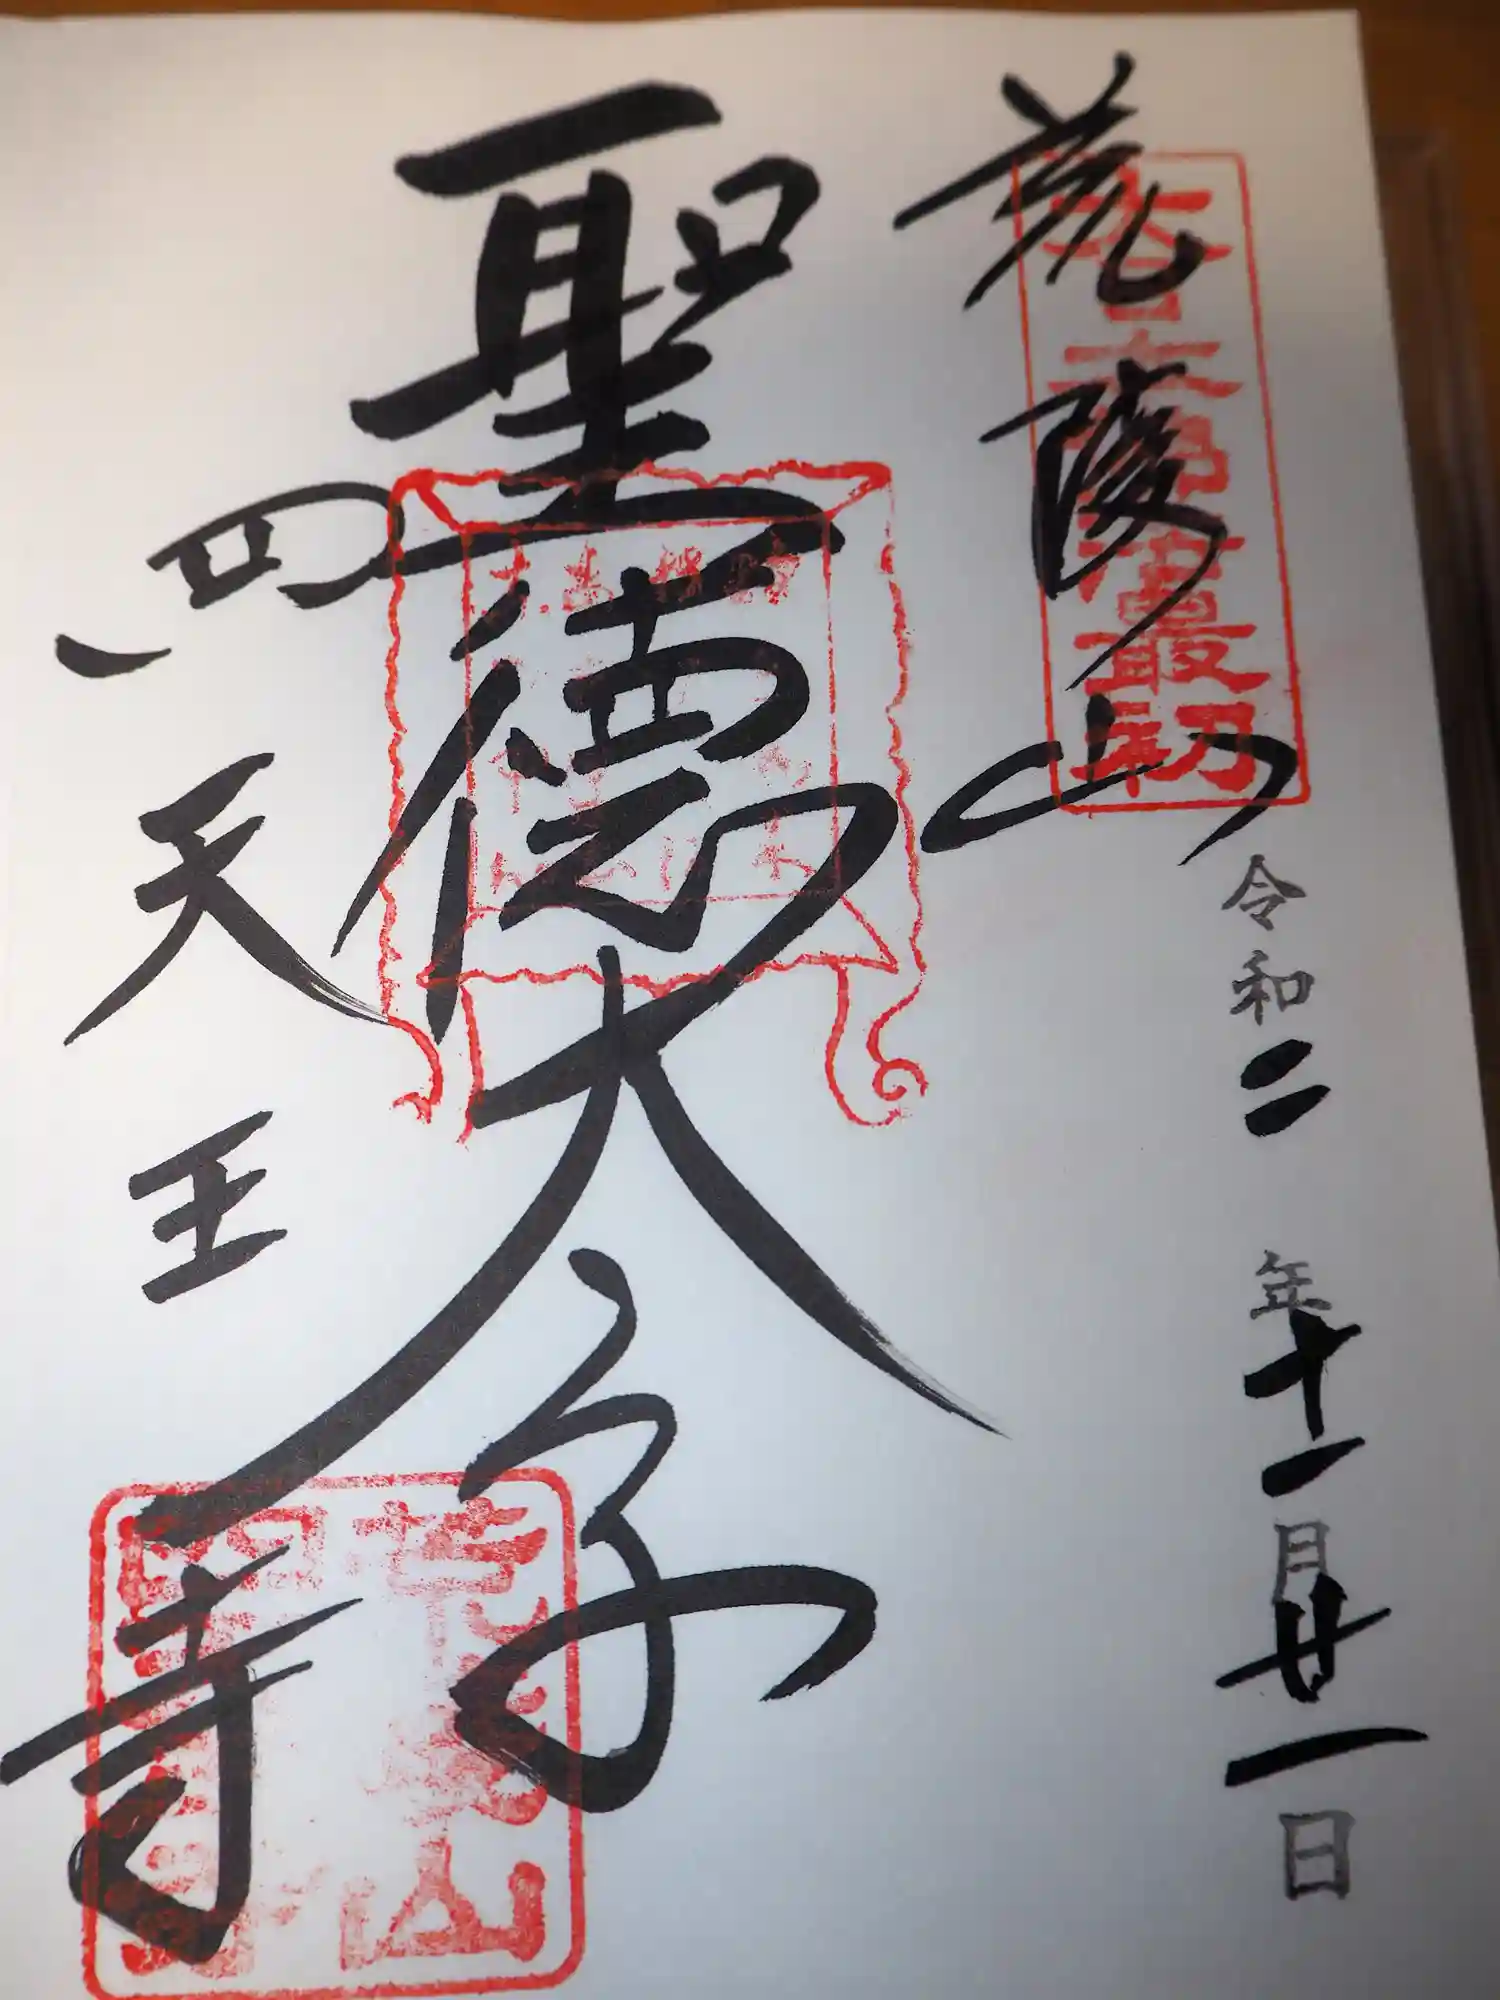 荒陵山
大日本佛法最初
令和二年十一月廿一日
聖徳太子
四天王寺
荒陵山